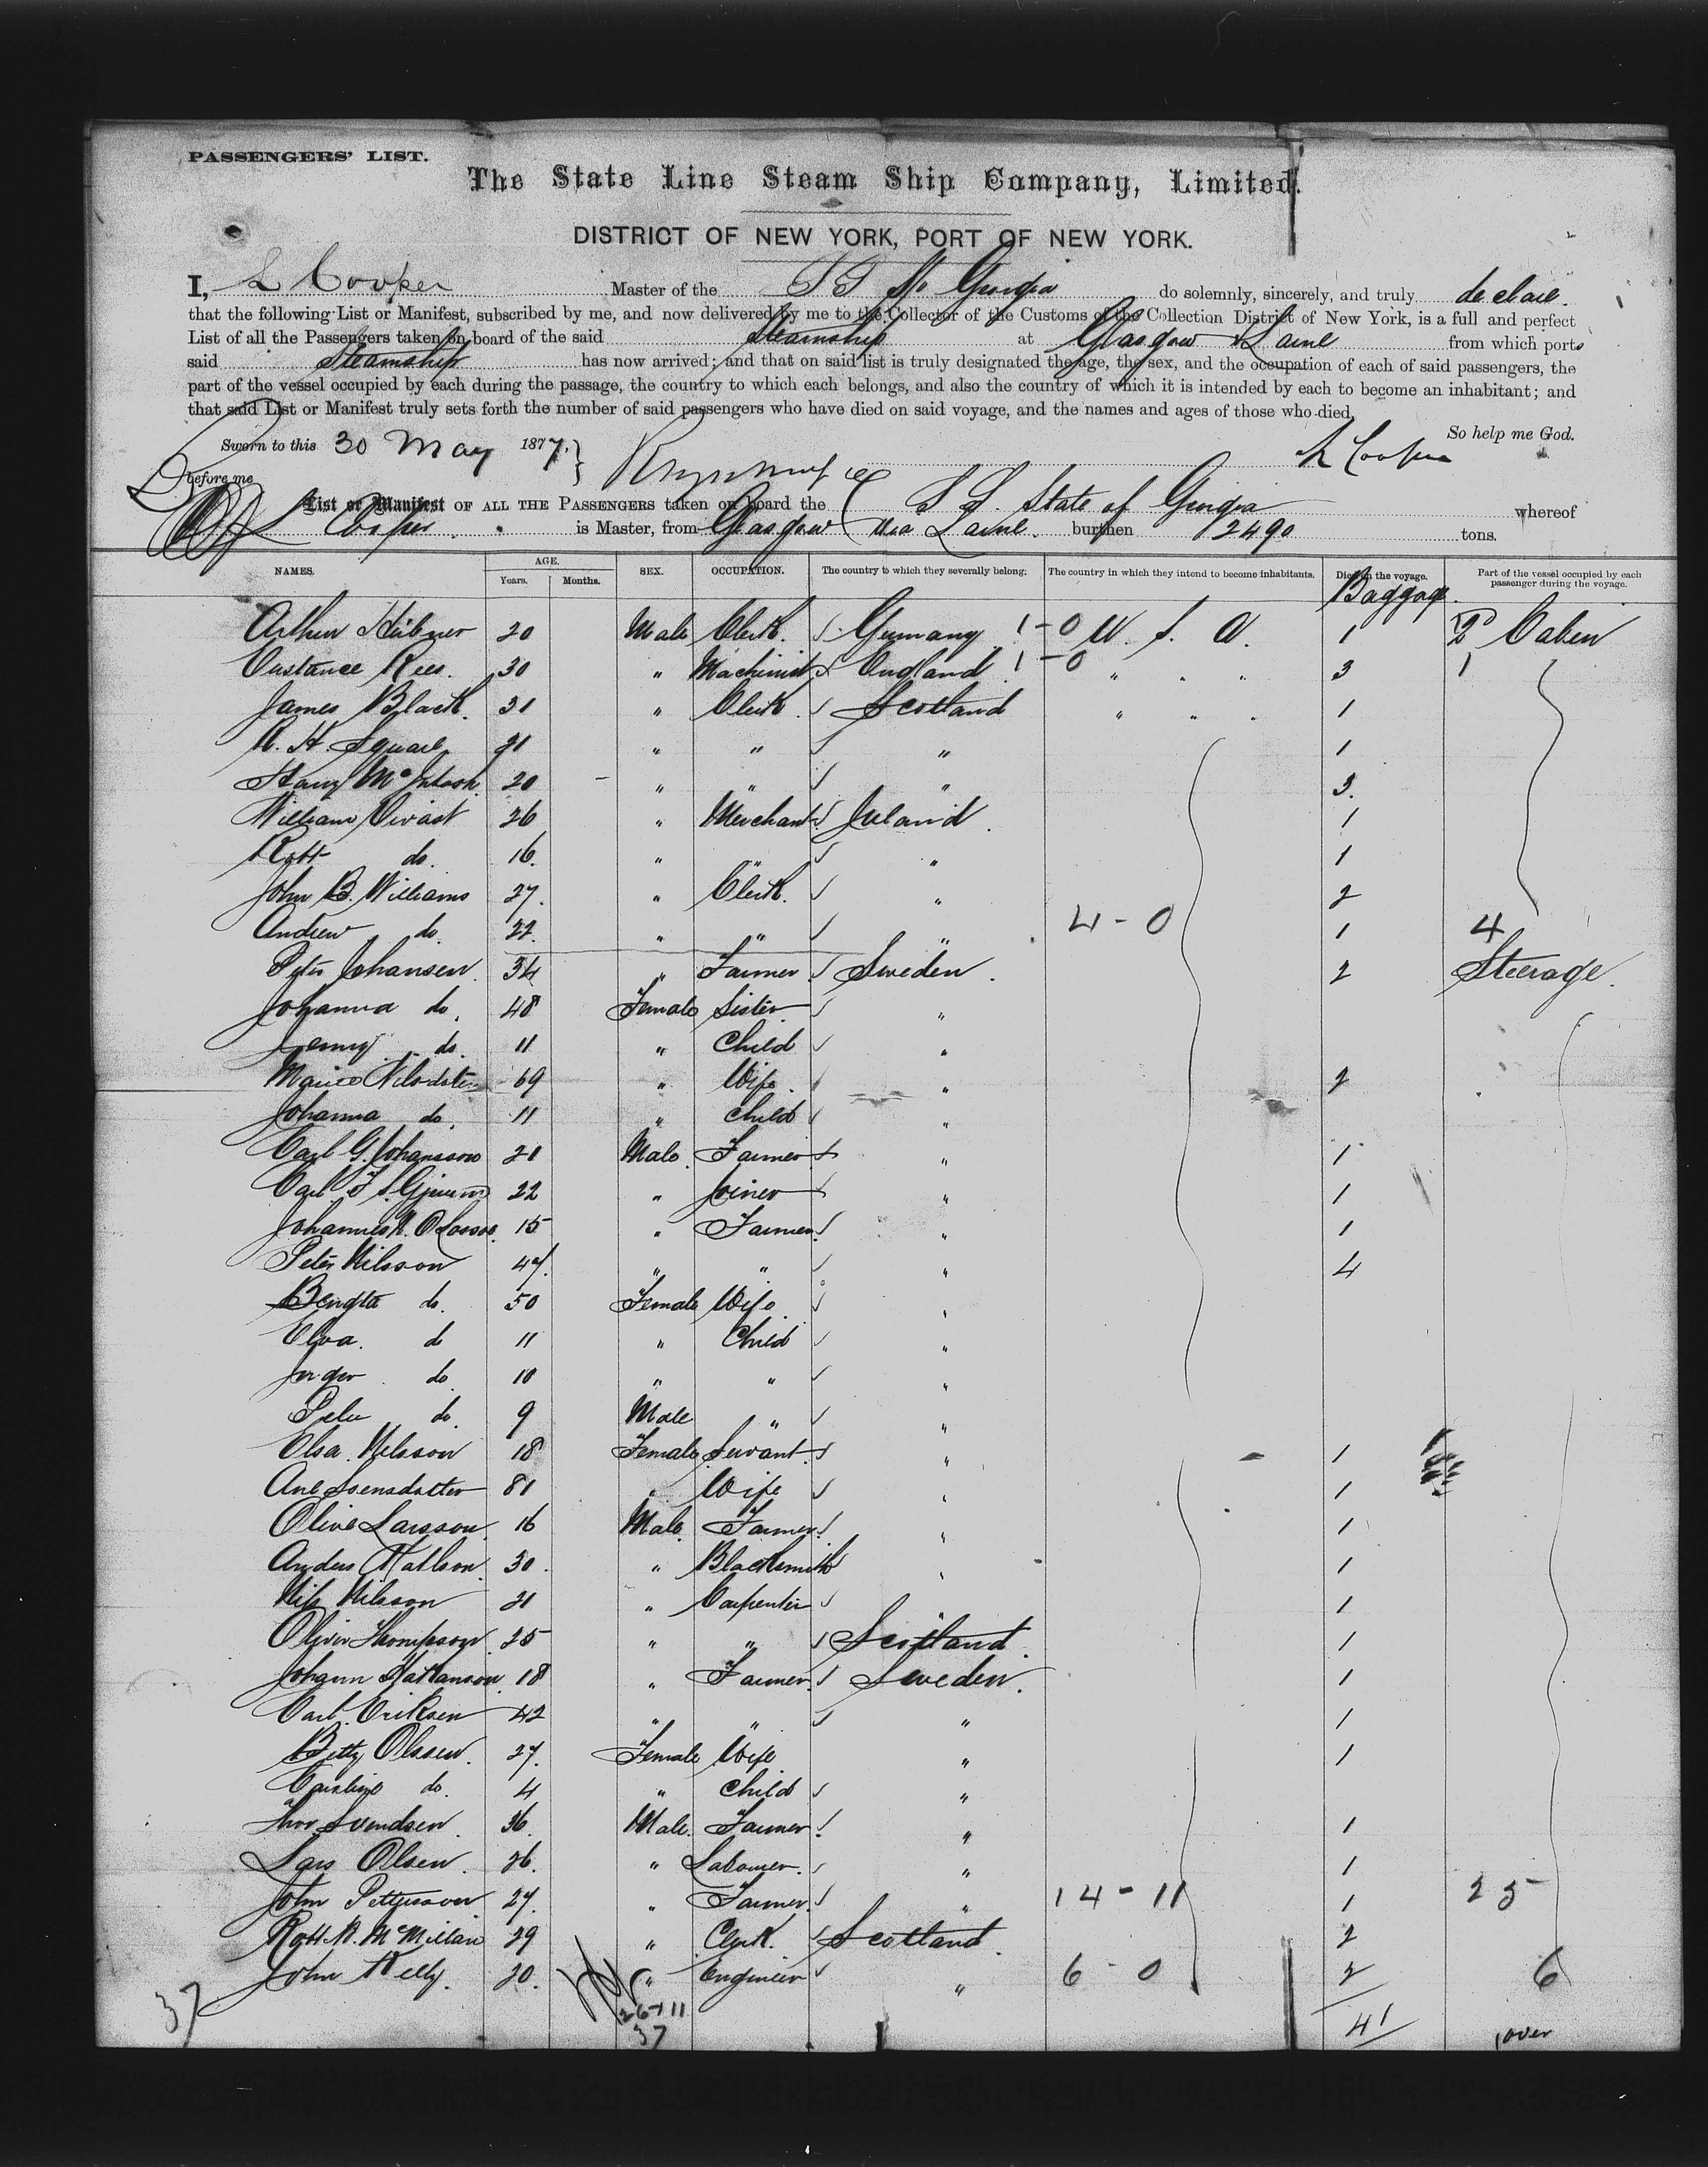 PASSENGERS' LIST.
The State Line Steam Ship Company, Limited.
DISTRICT OF NEW YORK, PORT OF NEW YORK.
I, L Cooper Master of the S S St. Georgia do solemnly, sincerely, and truly declare.
that the following List or Manifest, subscribed by me, and now delivered by me to the Collector of the Customs of the Collection District of New York, is a full and perfect
List of all the Passengers taken on board of the said Steamship at Glasgow & Larne from which ports
said Steamship has now arrived; and that on said list is truly designated the age, the sex, and the occupation of each of said passengers, the
part of the vessel occupied by each during the passage, the country to which each belongs, and also the country of which it is intended by each to become an inhabitant; and
that said List or Manifest truly sets forth the number of said passengers who have died on said voyage, and the names and ages of those who died.
So help me God.
Sworn to this 30 May 1877. L Cooper
Before me
List or Manifest OF ALL THE PASSENGERS taken on board the S S. State of Georgia whereof
L Cooper. is Master, from Glasgow via Larne. burthen 2490 tons.
NAMES. AGE. Years. Months. SEX. OCCUPATION. The country to which they severally belong. The country in which they intend to become inhabitants. Died on the voyage. Part of the vessel occupied by each passenger during the voyage.
Baggage.
Arthur Hübner 20 Male Clerk. Germany 1-0 U. S. A. 1 2d Cabin
Custance Rees. 30 " Machinist England 1-0 " " " 3 1
James Black. 31 " Clerk. Scotland " " " 1
21 " " " 1
20 " " " 3.
William 26 " Merchant Ireland. 1
Robt do. 16. " " " 1
John B. Williams 27. " Clerk. " 2
Andrew do. 22. " " " 4-0 1 4
Peter Johansen. 34 " Farmer Sweden. 2 Steerage.
Johanna do. 48 Female Sister "
Jenny do. 11 " Child "
69 " Wife. " 2
Johanna do. 11 " Child "
Carl G. Johansson 21 Male. Farmer " 1
Carl 22 " Joiner " 1
Johannes 15 " Farmer. " 1
Peter Nilsson 47. " " " 4
Bengta do. 50 Female Wife "
Elva. do 11 " Child "
do 10 " " "
do. 9 Male " "
Elsa. Nilsson 18 Female Servant. " 1
81 " Wife " 1
Larsson. 16 Male. Farmer. " 1
Anders 30. " Blacksmith " 1
Nils Nilsson 21 " Carpenter " 1
Oliver Thompson 25 " " Scotland. 1
Johann 18 " Farmer. Sweden. 1
Carl Eriksen 42 " " " 1
Betty Olssen. 27. Female Wife " 1
Caroline do. 4 " Child "
Svendsen. 36. Male. Farmer. " 1
Lars Olsen. 26. " Labourer. " 1
John Pettersson 27. " Farmer. " 14-11 1 25
Robt McMillan 29 " Clerk. Scotland. 2
John Kelly. 20. " Engineer " 6-0 2 6
37 26+11 41 over
37